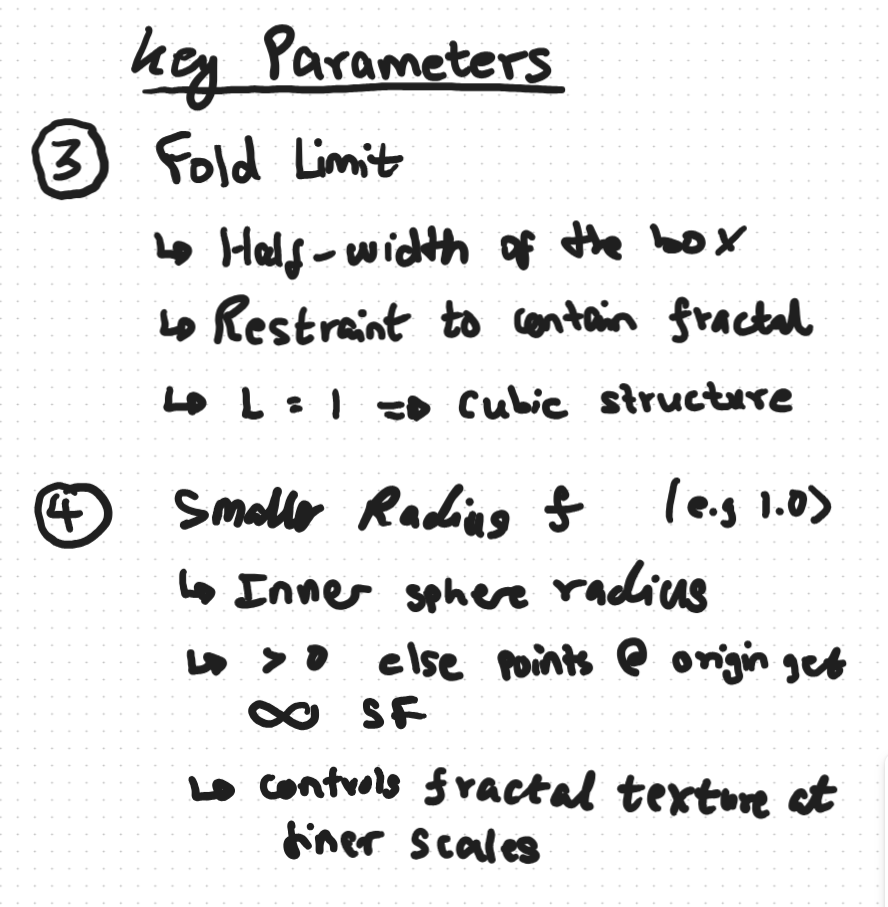 Key Parameters
③ Fold Limit
↳ Half-width of the box
↳ Restraint to contain fractal
↳ L = 1 => Cubic structure
④ Smaller Radius (e.g 1.0)
↳ Inner sphere radius
↳ > 0 else points @ origin get
∞ SF
↳ Controls fractal texture at
finer scales